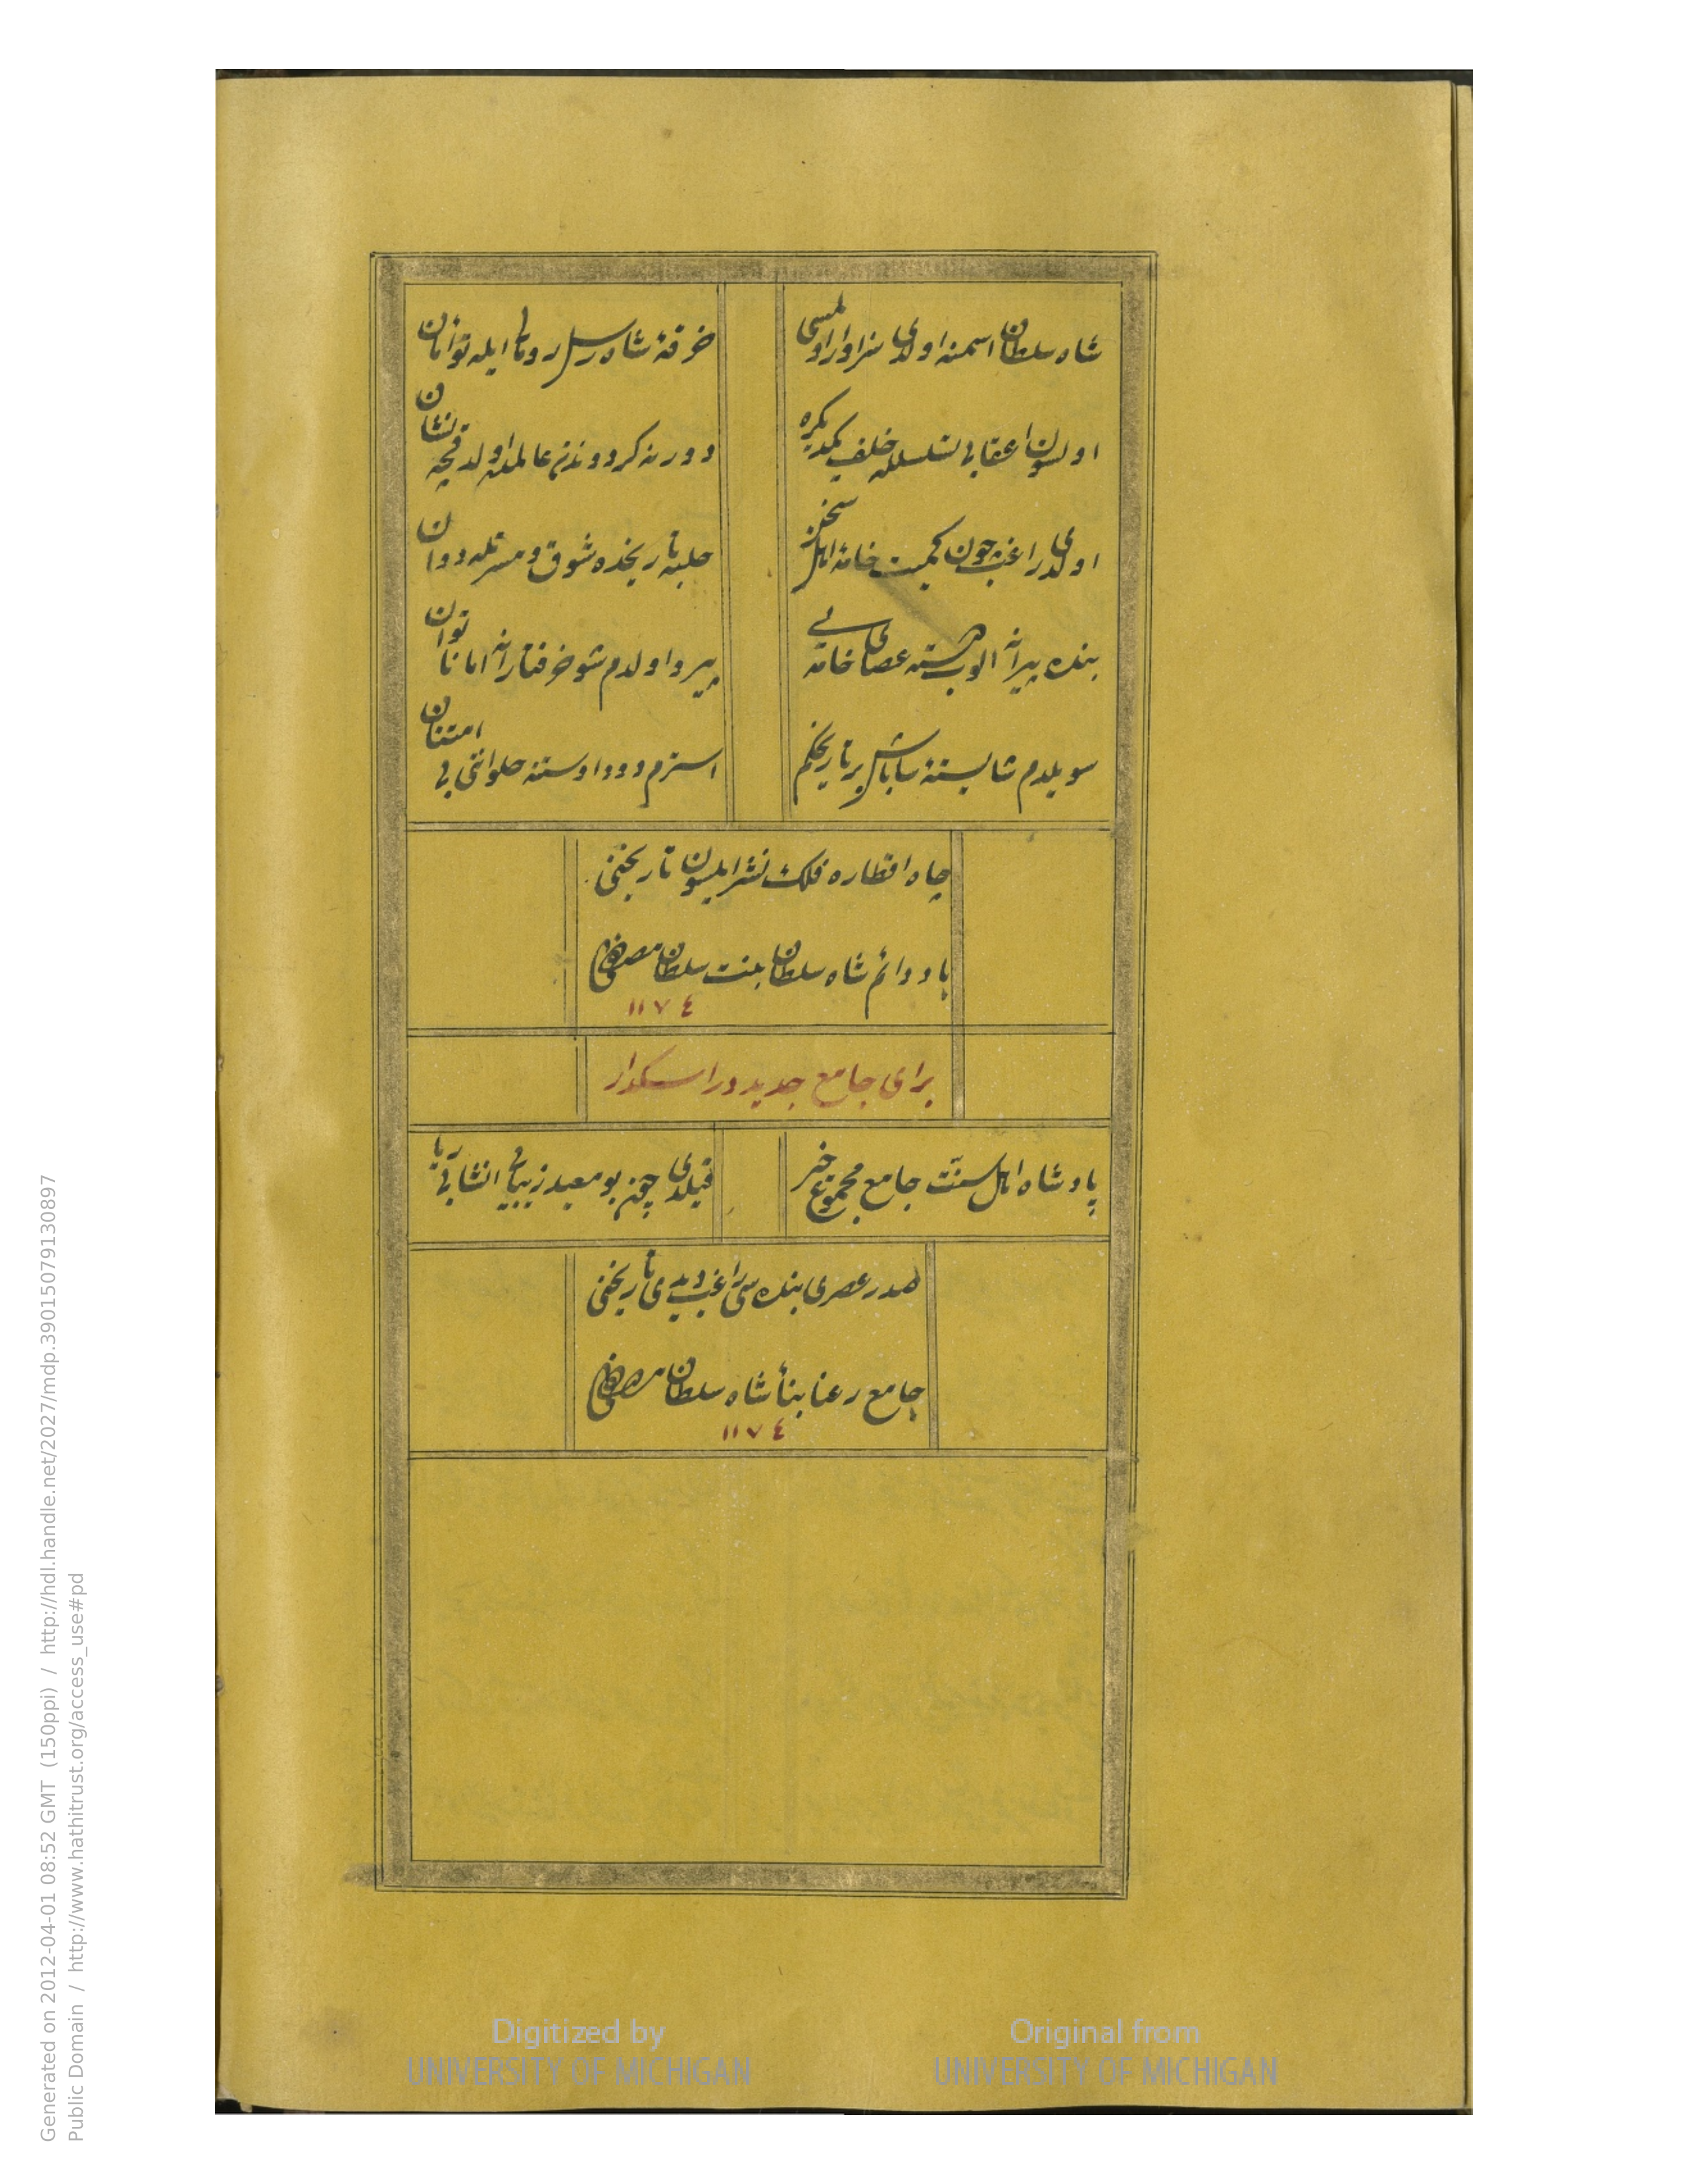 شاه سلطان اسمنه اولدی سزاوار اولمسی
خرقهٔ شاه رسل رومال ایله توأمان
اولسون اعقابی تسلسلله خلف یکدیکره
دورنه کردونڭ عالمده اولدقجه نشان
اولدی راغب چون کمیت خامهٔ اهل سخن
حلبهٔ تاریخده شوق و مسرتله دوان
بنده پیرانه الوب دسته عصای خامه یی
پیرو اولدم شوخ رفتارانه اما ناتوان
سویلدم شایستهٔ شاباش بر تاریخکم
استرم دوداوستنه حلواتی بی امتنان
چاه اقطاره فلک نشر ایلسون تاریخنی
باد دائم شاه سلطان بنت سلطان مصطفی
١١٧٤
برای جامع جدید در اسکدار
پادشاه اهل سنت جامع مجموع خیر
قیلدی چون بو معبد زیبایی انشا بی ریا
صدر عصری بنده سی راغب دیدی تاریخنی
جامع رعنا بنأ شاه سلطان مصطفی
١١٧٤
Generated on 2012-04-01 08:52 GMT (150ppi) / http://hdl.handle.net/2027/mdp.39015079130897
Public Domain / http://www.hathitrust.org/access_use#pd
Digitized by
UNIVERSITY OF MICHIGAN
Original from
UNIVERSITY OF MICHIGAN